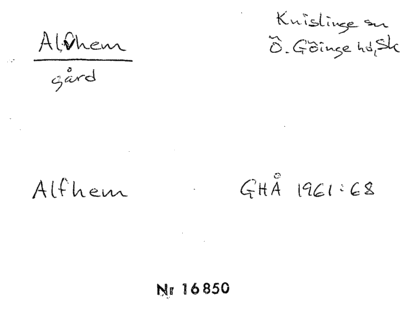 Alvhem
gård
Knislinge sn
Ö. Göinge hd, Sk
Alfhem
GHÅ 1961:68
Nr 16850